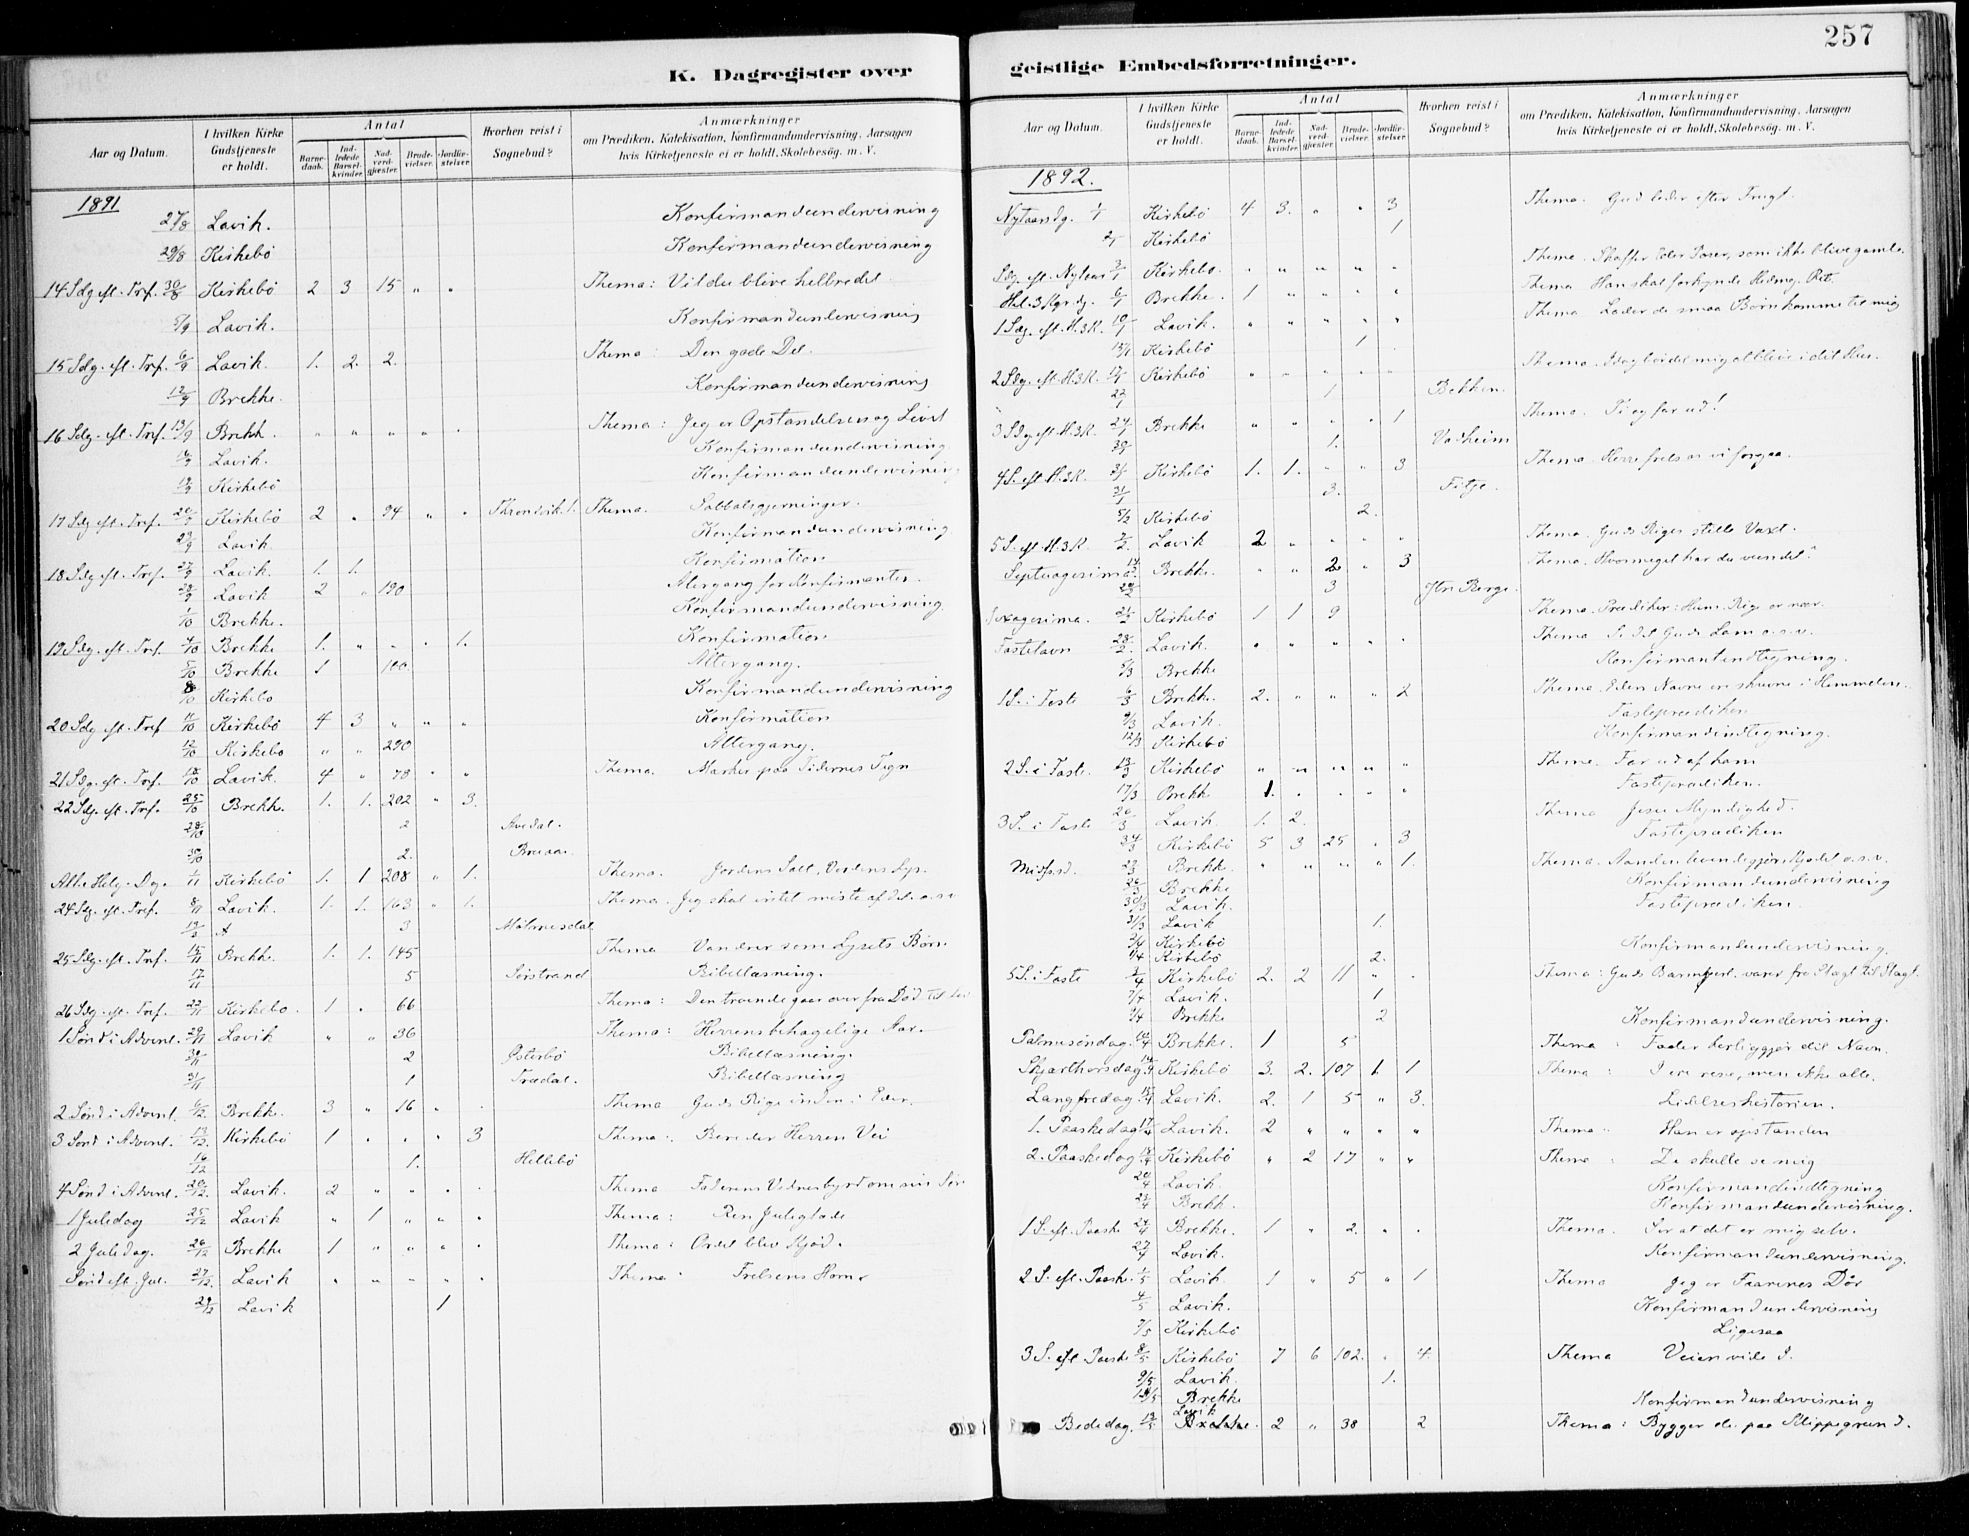 257
K. Dagregister over
geistlige Embedsforretninger.
Aar og Datum. I hvilken Kirke Gudstjeneste er holdt. Antal Barnedaab. Indledede Barselkvinder. Nadverdgjæster. Brudevielser. Jordfæstelser. Hvorhen reist i Sognebud? Anmærkninger om Prædiken, Katekisation, Konfirmandundervisning, Aarsagen hvis Kirketjeneste ei er holdt, Skolebesøg. m. V.
1891
27/8 Lavik. Konfirmandundervisning
29/8 Kirkebö Konfirmandundervisning
14 Sdg eft. Tref. 30/8 Kirkebö 2 3 15 " " Thema: Vil du blive helbredet.
5/9 Lavik. Konfirmandundervisning
15 Sdg. eft. Tref. 6/9 Lavik. 1. 2. 2. Thema: Den gode Del.
12/9 Brekke. Konfirmandundervisning
16 Sdg. eft. Tref. 13/9 Brekk. " " " " " Thema: Jeg er Opstandelsen og Livet
16/9 Lavik. Konfirmandundervisning.
19/9 Kirkebö Konfirmandundervisning
17 Sdg eft. Tref. 20/9 Kirkebö 2 " 94 " " Throndvik. 1. Thema. Sabbatsgjerninger.
23/9 Lavik Konfirmandundervisning
18 Sdg eft. Tref. 27/9 Lavik. 1. 1. Konfirmation
28/9 Lavik 2 " 190 Altergang for Konfirmanter.
1/10 Brekke. Konfirmandundervisning.
19 Sdg. eft. Tref. 4/10 Brekke 1. " " " 1. Konfirmation
5/10 Brekke 1 100 Altergang.
8/10 Kirkebo Konfirmandundervisning
20 Sdg eft. Tref 11/10 Kirkebö 4 3 " " " Konfirmation
12/10 Kirkebo " " 290 Altergang.
21 Sdg. eft. Tref. 18/10 Lavik. 4 " 78 " " Thema. Mærker paa Tidernes Tegn
22 Sdg. eft. Tref. 25/10 Brekke. 1. 1. 202 " 3.
28/10 2 Avedal.
30/10 2.
Alle Helg. Dg. 1/11 Kirkebö 1. 1 208 " 1. Thema. Jordens Salt, Verdens Lys.
24 Sdg. eft. Tref. 8/11 Lavik. 1. 1. 163 " 1. Thema. Jeg skal intet miste af det o.s.v
3
25 Sdg. eft. Tref. 15/11 Brekke. 1. 1. 145 Thema Vandrer som Lysets Børn.
17/11 5 Sørstrand Bibellæsning.
26 Sdg. eft. Tref. 22/11 Kirkebo. 1 " 66 Thema: Den troende gaar over fra Død til Liv
1 Sønd i Advent. 29/11 Lavik " " 36 Thema: Herrens behagelige Aar.
30/11 2 Østerbö Bibellæsning.
31/11 1 Trædal. Bibellæsning
2 Sønd i Advent. 6/12 Brekke. 3 " 16 " " Thema Guds Rige inden i Eder.
3 Sønd i Advent. 13/12 Kirkebö 1 " " " 3 Thema: Bereder Herren Vei
16/12 1. Hellebö
4 Sønd i Advent. 20/12. Lavik. 2 " " " " Thema Faderens Vidnesbyrd om sin Søn
1 Juledag 25/12 Lavik " 1 " " " Thema: Ren Juleglæde
2 Juledag. 26/12 Brekke 1 " " " " Thema: Ordet blev Kjød.
Sønd eft. Jul. 27/12. Lavik " " " " " Thema: Frelsens Horn
29/12 Lavik 1
Aar og Datum. I hvilken Kirke Gudstjeneste er holdt. Antal Barnedaab. Indledede Barselkvinder. Nadverdgjæster. Brudevielser. Jordfæstelser. Hvorhen reist i Sognebud? Anmærkninger om Prædiken, Katekisation, Konfirmandundervisning, Aarsagen hvis Kirketjeneste ei er holdt, Skolebesøg. m. V.
1892.
Nytaarsdg. 1/1 Kirkebö 4 3. " " 3 Thema. Gud leder efter Frugt.
2/1 Kirkebö 1
Sdg. eft. Nytaar 3/1 Kirkebo. " " " " " Thema. Skaffer Eder Poser, som ikke blive gamle.
Hel. 3 Kgr. dg. 6/1 Brekke. 1 " " " " Thema Han skal forkynde Hedning. Ret.
1 Sdg. eft. H.3.K. 10/1 Lavik. " " " " " Thema Lader de smaa Børn komme til mig
13/1 Kirkebö 1
2 Sdg. eft. H.3.K. 17/1 Kirkebö " " " " " Thema. Idag bør det mig at blive i dit Hus.
22/1 1 Bekken.
3 Sdg eft. H.3.K. 24/1 Brekke " " " " 1 Thema. Ti og far ud!
30/1 1. Vadheim
4 S. eft. H.3.K. 31/1 Kirkebö 1. 1. " " 3 Thema. Herre frels os vi forgaa.
31/1 3. Fitje.
5/2 Kirkebö 2.
5 S. eft. H.3.K. 7/2. Lavik 2 " " " " Thema. Guds Riges stille Væxt.
Septuagesima 14/2 Brekke. " " 2 " 3 Thema. Hvormeget har du vundet?
20/2 3 Ytre Berge.
Sexagesima. 21/2 Kirkebö 1 1 9 Thema. Prædiker: Him. Rige er nær.
Fastelavn 28/2. Lavik. " " " " " Thema Se det Guds Lam o.s.v.
5/3 Brekke Konfirmantindtegning.
1 S. i Faste 6/3 Brekke. 2. " " " 2 Thema. Eders Navne er skrevne i Himmelen.
9/3 Lavik. Fasteprædiken
12/3 Kirkebö Konfirmandindtegning.
2 S. i Faste. 13/3 Kirkebö " " " " " Thema. Far ud af ham
17/3 Brekk 1. " " " " Fasteprædiken.
3 S. i Faste 20/3 Lavik. 1. 2. Thema Jesu Myndighed.
24/3 Kirkebö 5 3 25 " 3 Fasteprædiken
Midfast. Brekke. " " " " 1. Thema. Aanden levendegjør, Kjødet o.s.v.
Brekke. Konfirmandundervisning
30/3 Lavik. Fasteprædiken.
31/3 Lavik 1.
2/4 Kirkebö Konfirmandundervisning.
Kirkebö 2.
5 S. i Faste Kirkebö 2. 2 11 " " Thema: Guds Barmhjert. varer fra Slægt til Slægt.
7/4 Lavik. 1
9/4 Brekke 2 Konfirmandundervisning.
Palmesøndag. 10/4 Brekke. 1 5 Thema: Fader herliggjør dit Navn.
Skjærthorsdag 14/4 Kirkebö 3. 2. 107 1 1 Thema: I ere rene, men ikke alle.
Langfredag. 15/4 Lavik. 2. 1 5 " 3. Lidelseshistorien.
1. Paaskedag 17/4 Lavik. 2 " " " " Thema: Han er opstanden
2. Paaskedag 18/4 Kirkebö " 2 17 " " Thema: De skulle se mig
20/4 Lavik. Konfirmandindtegning
Brekk. Konfirmandundervisning.
1 S. eft. Paaske 24/4 Brekke. 1 " 2. " " Thema. Ser at det er mig selv.
27/4 Lavik. Konfirmandundervisning.
2 S. eft. Paaske. 1/5 Lavik. 1 " 5 " 1 Thema Jeg er Faarenes Dør
4/5 Lavik. Konfirmandundervisning
7/5 Kirkebö Ligesaa
3 S. eft. Paaske 8/5 Kirkebö 7 6 102. " 4. Thema Veien vide I.
9/5 Lavik. 1.
Brekke Konfirmandundervisning
Lavik
Bededag. 13/5 Brekke. 2 " 38 2 Thema: Bygger de paa Klippegrund.